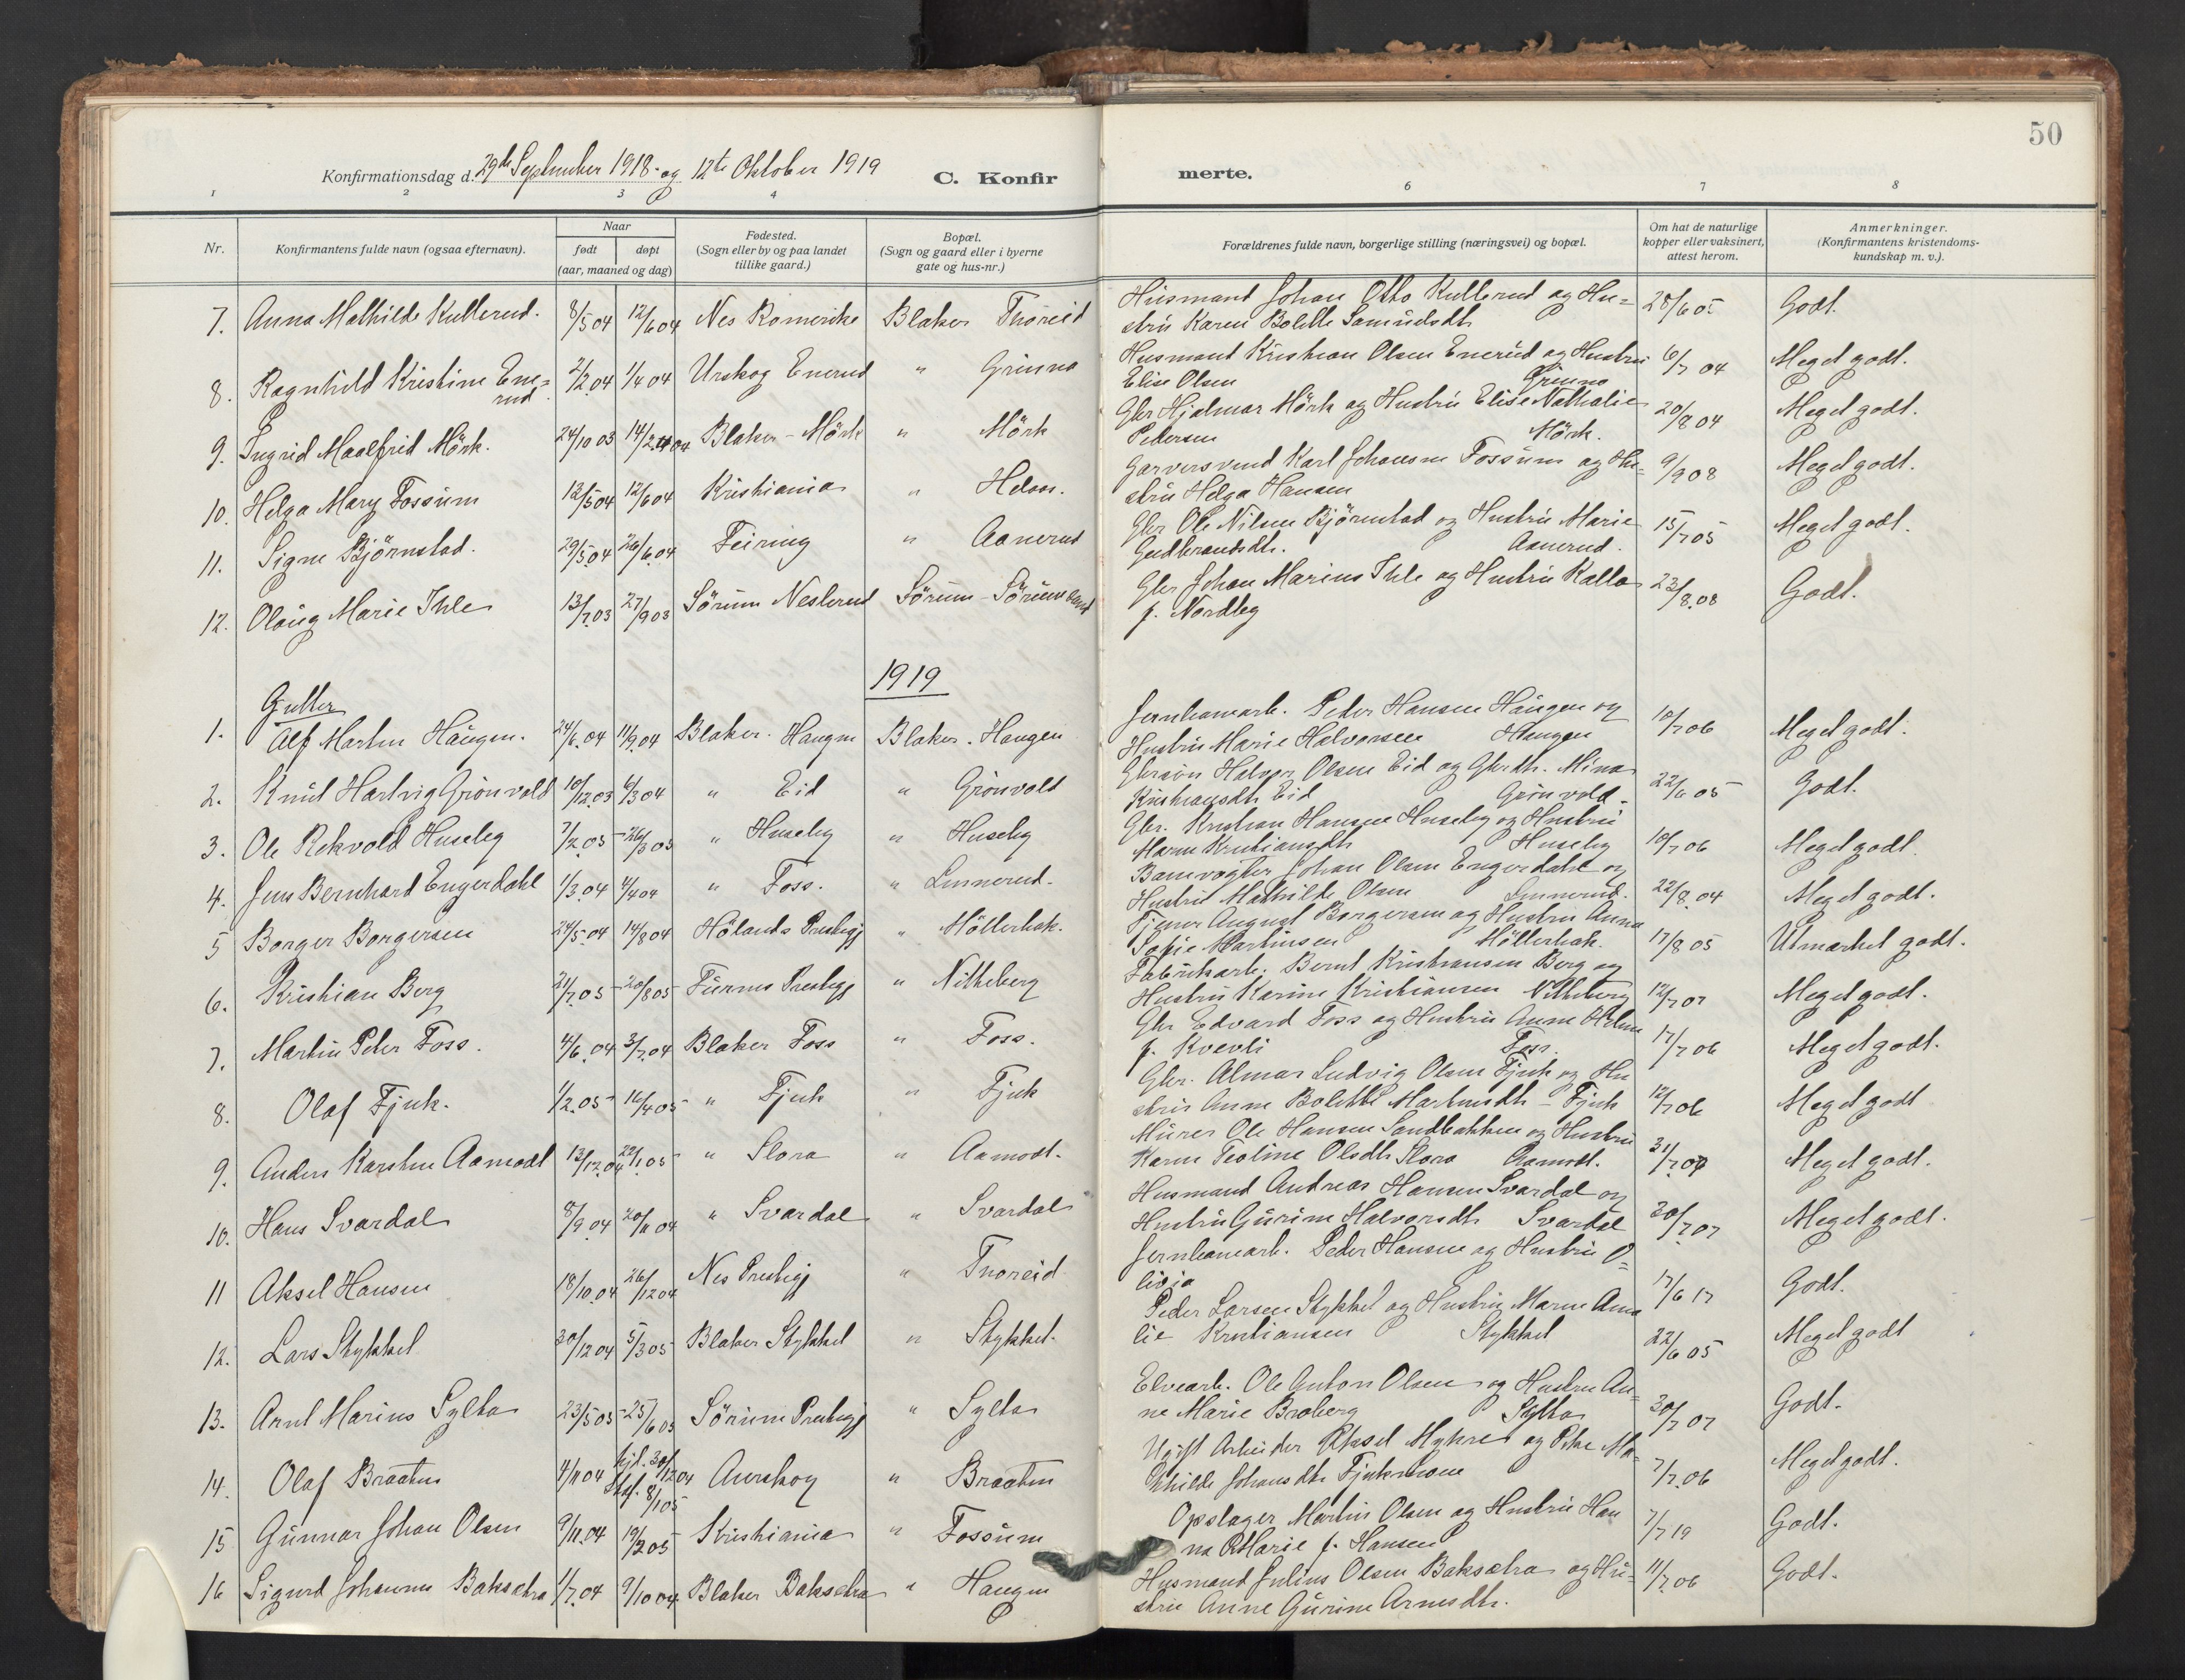 50
Konfirmationsdag d. 29de September 1918 og 12te Oktober 1919 C. Konfir merte.
1 2 3 4 6 7 8
Nr. Konfirmantens fulde navn (ogsaa efternavn). Naar født døpt (aar, maaned og dag) Fødested. (Sogn eller by og paa landet tillike gaard.) Bopæl. (Sogn og gaard eller i byerne gate og hus-nr.) Forældrenes fulde navn, borgerlige stilling (næringsvei) og bopæl. Om hat de naturlige kopper eller vaksinert, attest herom. Anmerkninger. (Konfirmantens kristendoms- kundskap m. v.).
7. Anna Mathilde Kullerud. 8/5 04 12/6 04 Nes Romerike Blaker Tnoreid Husmand Johan Otto Kullerud og Hu= 28/6 05 Godt.
stru Karen Bolette Samuelsdtr
8. Ragnhild Kristine Ene= 2/2 04 1/4 04 Urskog Enerud " Grinna Husmand Kristian Olsen Enerud og Hustru 6/7 04 Meget godt.
rud. Elise Olsen Grinna
9. Ingrid Maalfrid Mörk. 24/10 03 14/2 04 Blaker - Mörk " Mörk Gbr Hjalmar Mörk og Hustru Elise Nathalie 20/8 04 Meget godt.
Petersen Mörk.
10. Helga Mary Fossum 12/5 04 12/6 04 Kristiania " Garversvend Karl Johansen Fossum og Hu= 9/9 08 Meget godt.
stru Helga Hansen
11. Signe Björnstad. 29/5 04 26/6 04 Feiring " Aanerud Gbr Ole Nilsen Björnstad og Hustru Marie 15/7 05 Meget godt.
Gudbrandsdtr. Aanerud.
12. Olaug Marie Ihle 13/7 03 27/9 03 Sörum Neslerud Sörum - Sörumsand Gbr Johan Marius Ihle og Hustru Kalla 23/8 08 Godt.
f. Nordby
1919
Gutter
1. Alf Martin Haugen. 24/6 04 11/9 04 Blaker. Haugen Blaker. Haugen Jernbanearb. Peder Hansen Haugen og 10/7 06 Meget godt.
Hustru Marie Halvorsen Haugen
2. Knut Hartvig Grönvold 10/12 03 6/3 04 " Eid " Grönvold Gbrsön Halvor Olsen Eid og Gbrdtr. Mina 22/6 05 Godt.
Kristiansdtr Eid Grönvold.
3. Ole Rekvold Huseby 7/2 05 26/3 05 " Huseby " Huseby Gbr. Kristian Hansen Huseby og Hustru 10/7 06 Meget godt.
Maren Kristiansdtr Huseby
4. Jens Bernhard Engerdahl 1/3 04 4/4 04 " Foss. " Linnerud. Banevogter Johan Olsen Engerdahl og 22/8 04 Meget godt.
Hustru Mathilde Olsen Linnerud.
5 Borger Borgersen 24/5 04 14/8 04 Hölands Prestegj " Möllerbak. Tjener August Borgersen og Hustru Anna 17/8 05 Utmerket godt.
Sofie Martinsen Möllerbak.
6. Kristian Berg 24/7 05 20/8 05 Furnes Prestegj " Nitteberg Fabrikarb. Bernt Kristiansen Berg og 12/7 07 Meget godt.
Hustru Karine Kristiansen Nitteberg
7. Martin Peter Foss. 4/6 04 3/7 04 Blaker Foss " Foss. Gbr Edvard Foss og Hustru Anne Helene 17/7 06 Meget godt.
f. Kvevli Foss.
8. Olaf Fjuk. 1/2 05 16/4 05 " Fjuk " Fjuk Gbr. Almar Ludvig Olsen Fjuk og Hu 12/7 06 Meget godt
stru Anne Bolette Martinsdtr - Fjuk
9. Anders Karsten Aamodt 13/12 04 22/1 05 " Slora " Aamodt. Murer Ole Hansen Sandbakken og Hustru 31/7 07 Meget godt.
Karen Teoline Olsdtr Slora Aamodt.
10. Hans Svardal 8/9 04 20/11 04 " Svardal " Svardal Husmand Andreas Hansen Svardal og 30/7 07 Meget godt.
Hustru Gurine Halvorsdtr Svardal
11 Aksel Hansen 18/10 04 26/12 04 Nes Prestegj " Tnoreid Jernbanearb. Peder Hansen og Hustru O= 17/6 17 Godt.
livia
12. Lars Stykket 30/12 04 5/3 05 Blaker Stykket " Stykket. Peder Larsen Stykket og Hustru Maren Ama 22/6 05 Meget godt
lie Kristiansen Stykket
13. Arnt Marius Sylta 23/5 05 25/6 05 Sörum Prestegj " Sylta Elvearb. Ole Anton Olsen og Hustru An= 30/7 07 Godt.
ne Marie Broberg Sylta
14. Olaf Braaten 4/11 04 hjd. 30/12 04 Stf. 8/1 05 Aurskog " Braaten Ugift Arbeider Aksel Myhre og Pike Ma= 7/7 06 Meget godt.
thilde Johansdtr Fjuksmoen
15 Gunnar Johan Olsen 9/11 04 19/2 05 Kristiania " Fossum Opslager Martin Olsen og Hustru Han 7/7 19 Godt.
na Marie f. Hansen
16 Sigurd Johannes Baksætra 1/7 04 9/10 04 Blaker Baksætra " Haugen Husmand Julius Olsen Baksætra og Hu= 11/7 06 Godt.
stru Anne Gurine Arnesdtr.